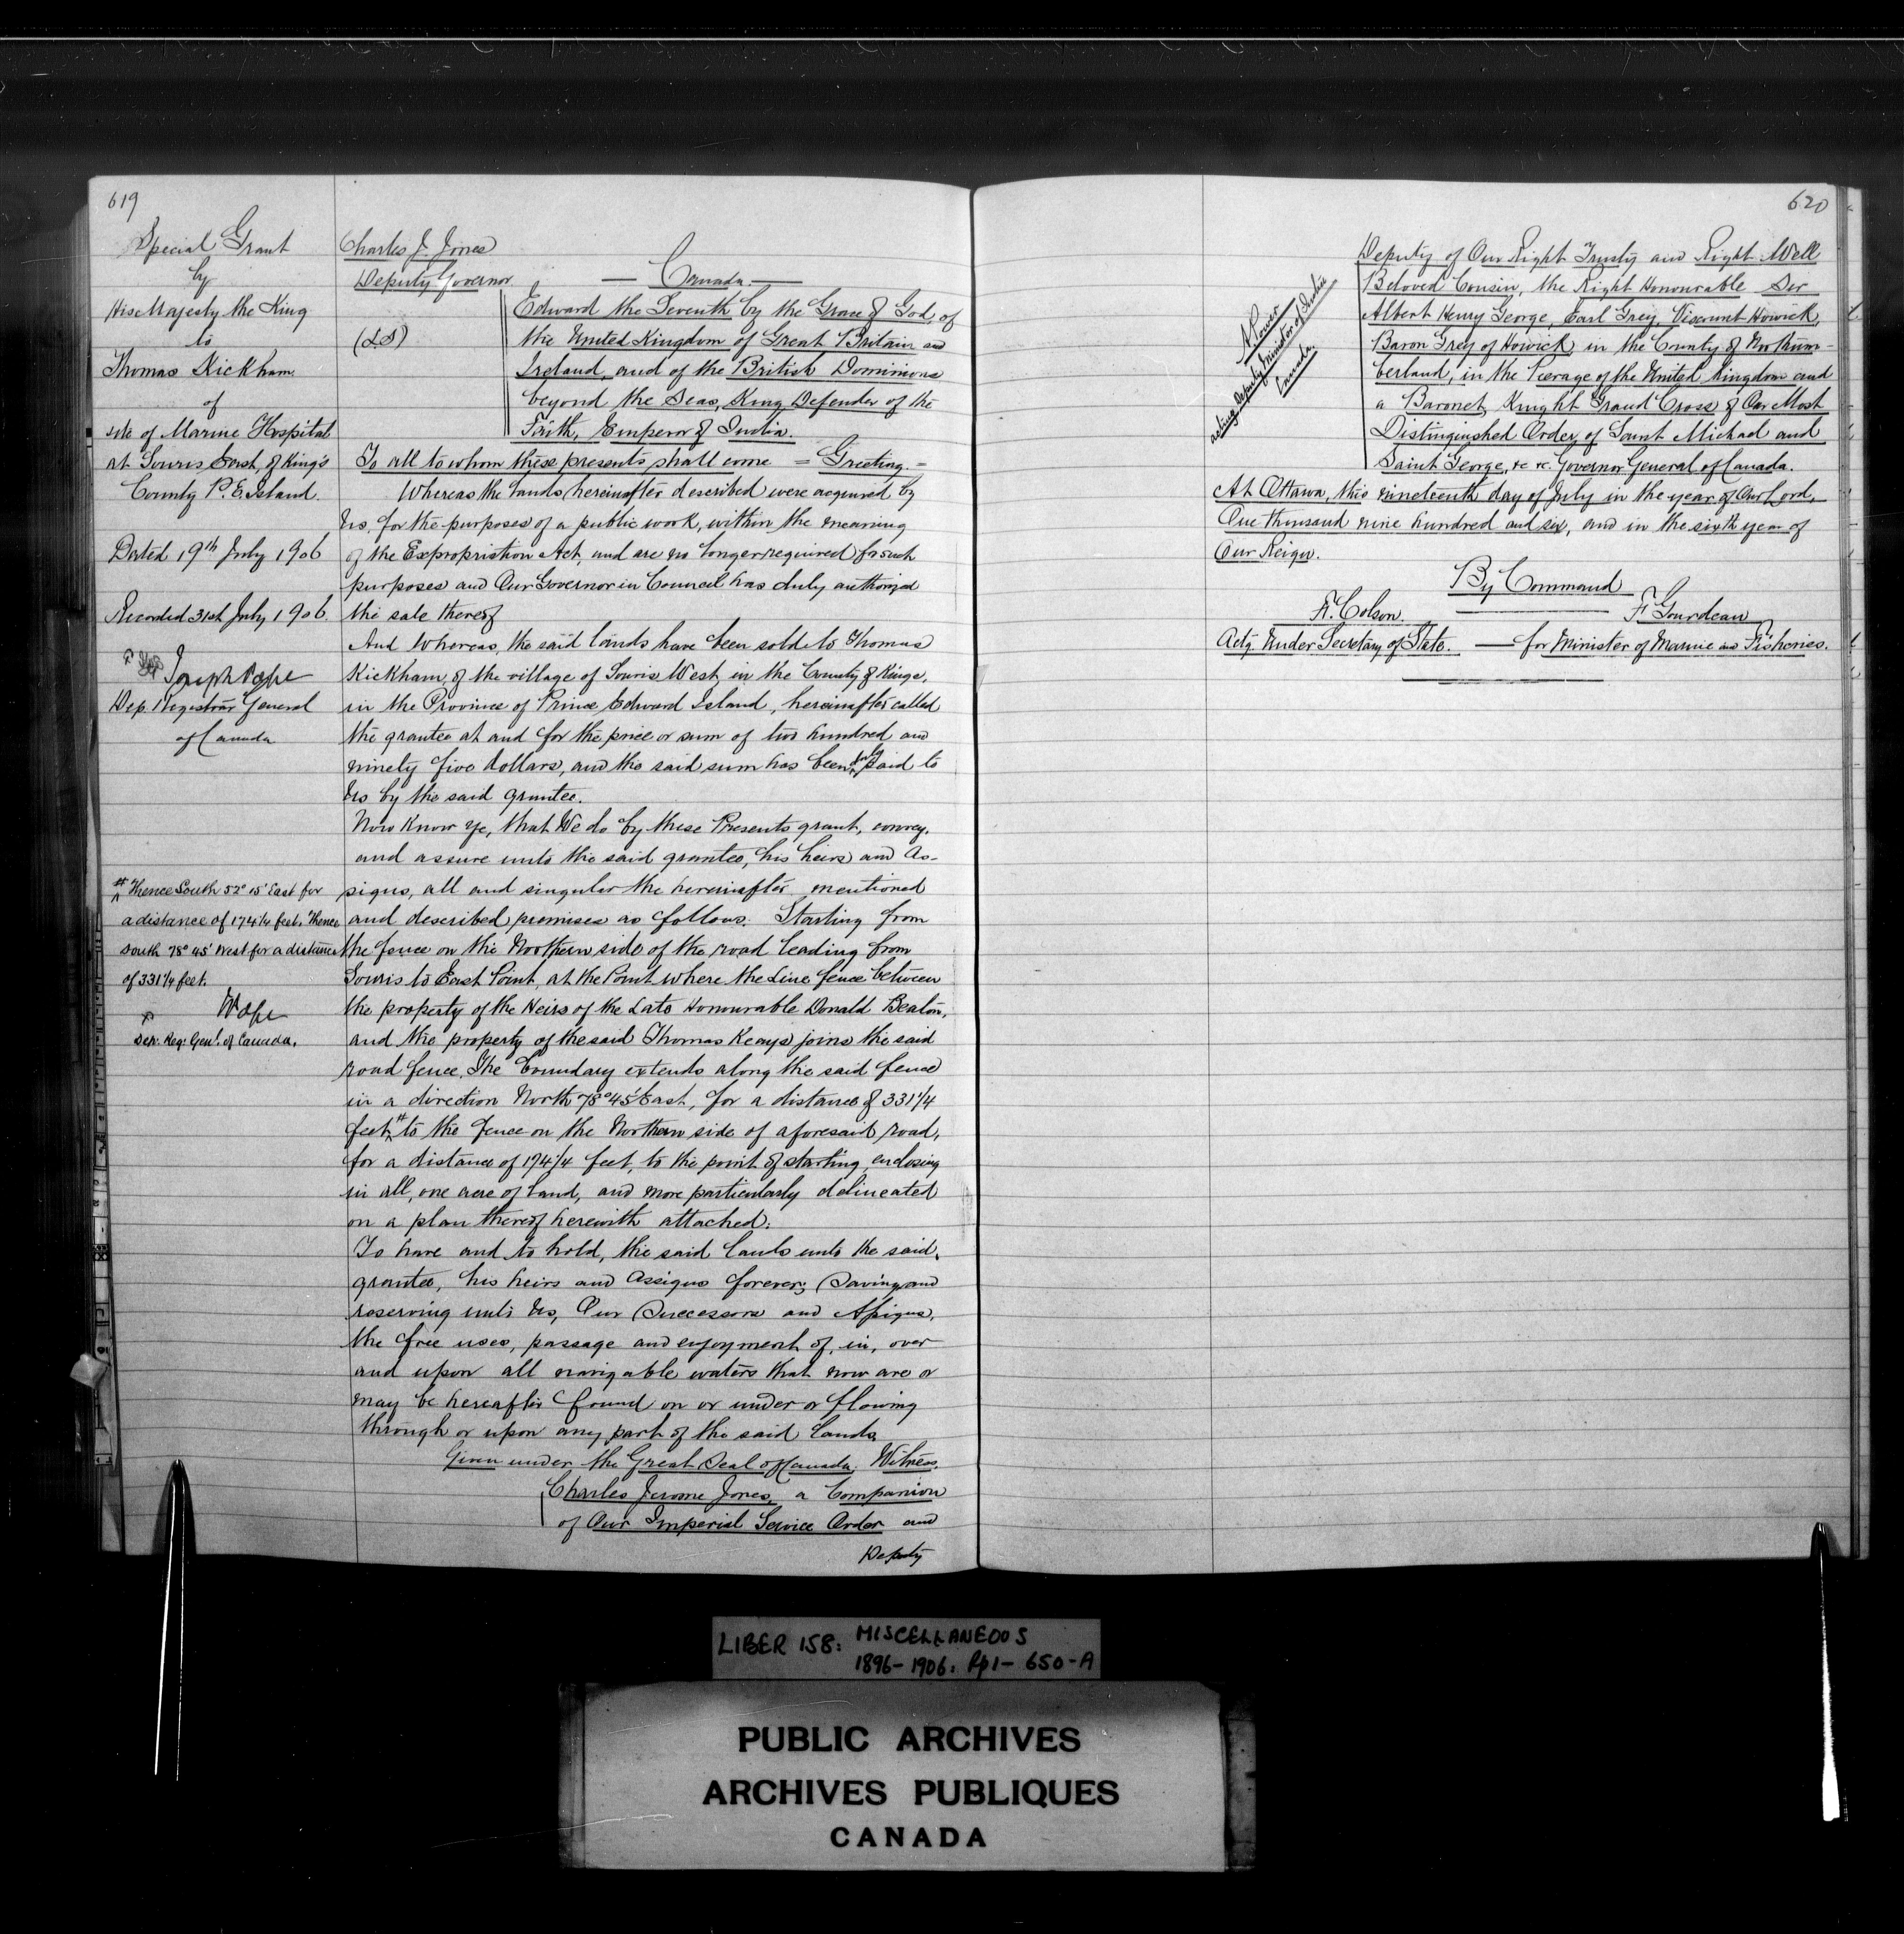 619
Special Grant
by
His Majesty the King
to
Thomas Kickham
of
site of Marine Hospital
at Souris East, of King's
County P. E. Island.
Dated 19th July 1906
Recorded 31st July 1906.
Joseph Pope
Dep. Registrar General
of Canada
# Thence South 52° 15' East for
a distance of 174 1/4 feet. Thence
South 78° 45' West for a distance
of 331 1/4 feet.
Pope
Dep. Reg. Genl. of Canada.
Charles J. Jones
Deputy Governor
(LS)
— Canada —
Edward the Seventh by the Grace of God, of
the United Kingdom of Great Britain and
Ireland, and of the British Dominions
beyond the Seas, King Defender of the
Faith, Emperor of India.
To all to whom these presents shall come = Greeting. =
Whereas the lands hereinafter described were acquired by
Us, for the purposes of a public work, within the meaning
of the Expropriation Act, and are no longer required for such
purposes and Our Governor in Council has duly authorized
the sale thereof
And Whereas, the said lands have been sold to Thomas
Kickham, of the village of Souris West, in the County of Kings,
in the Province of Prince Edward Island, hereinafter called
the grantee at and for the price or sum of two hundred and
ninety five dollars, and the said sum has been duly paid to
Us by the said grantee.
Now Know Ye, that We do by these Presents grant, convey,
and assure unto the said grantee, his heirs and As-
signs, all and singular the hereinafter mentioned
and described premises as follows: Starting from
the fence on the Northern side of the road leading from
Souris to East Point, at the Point where the Line fence between
the property of the Heirs of the Late Honourable Donald Beaton,
and the property of the said Thomas Keays joins the said
road fence. The boundary extends along the said fence
in a direction North 78° 45' East, for a distance of 331 1/4
feet # to the fence on the Northern side of aforesaid road,
for a distance of 174 1/4 feet, to the point of starting, enclosing
in all, one acre of land, and more particularly delineated
on a plan thereof herewith attached:
To have and to hold, the said lands unto the said
grantee, his heirs and Assigns forever; Saving and
reserving unto Us, Our Successors and Assigns,
the free uses, passage and enjoyment of, in, over
and upon all navigable waters that now are or
may be hereafter found on or under or flowing
through or upon any part of the said lands
Given under the Great Seal of Canada. Witness,
Charles Jerome Jones, a Companion
of Our Imperial Service Order and
Deputy
620
A. Power
Acting Deputy Minister of Justice
Canada.
Deputy of Our Right Trusty and Right Well
Beloved Cousin, the Right Honourable Sir
Albert Henry George, Earl Grey, Viscount Howick,
Baron Grey of Howick, in the County of Northum-
berland, in the Peerage of the United Kingdom and
a Baronet, Knight Grand Cross of Our Most
Distinguished Order of Saint Michael and
Saint George, &c &c. Governor General of Canada.
At Ottawa, this nineteenth day of July in the year of Our Lord,
One thousand nine hundred and six, and in the sixth year of
Our Reign.
By Command
F. Colson.
Actg. Under Secretary of State.
F Gourdeau
— for Minister of Marine and Fisheries.
LIBER 158: MISCELLANEOUS
1896-1906. Pp1- 650-A
PUBLIC ARCHIVES
ARCHIVES PUBLIQUES
CANADA